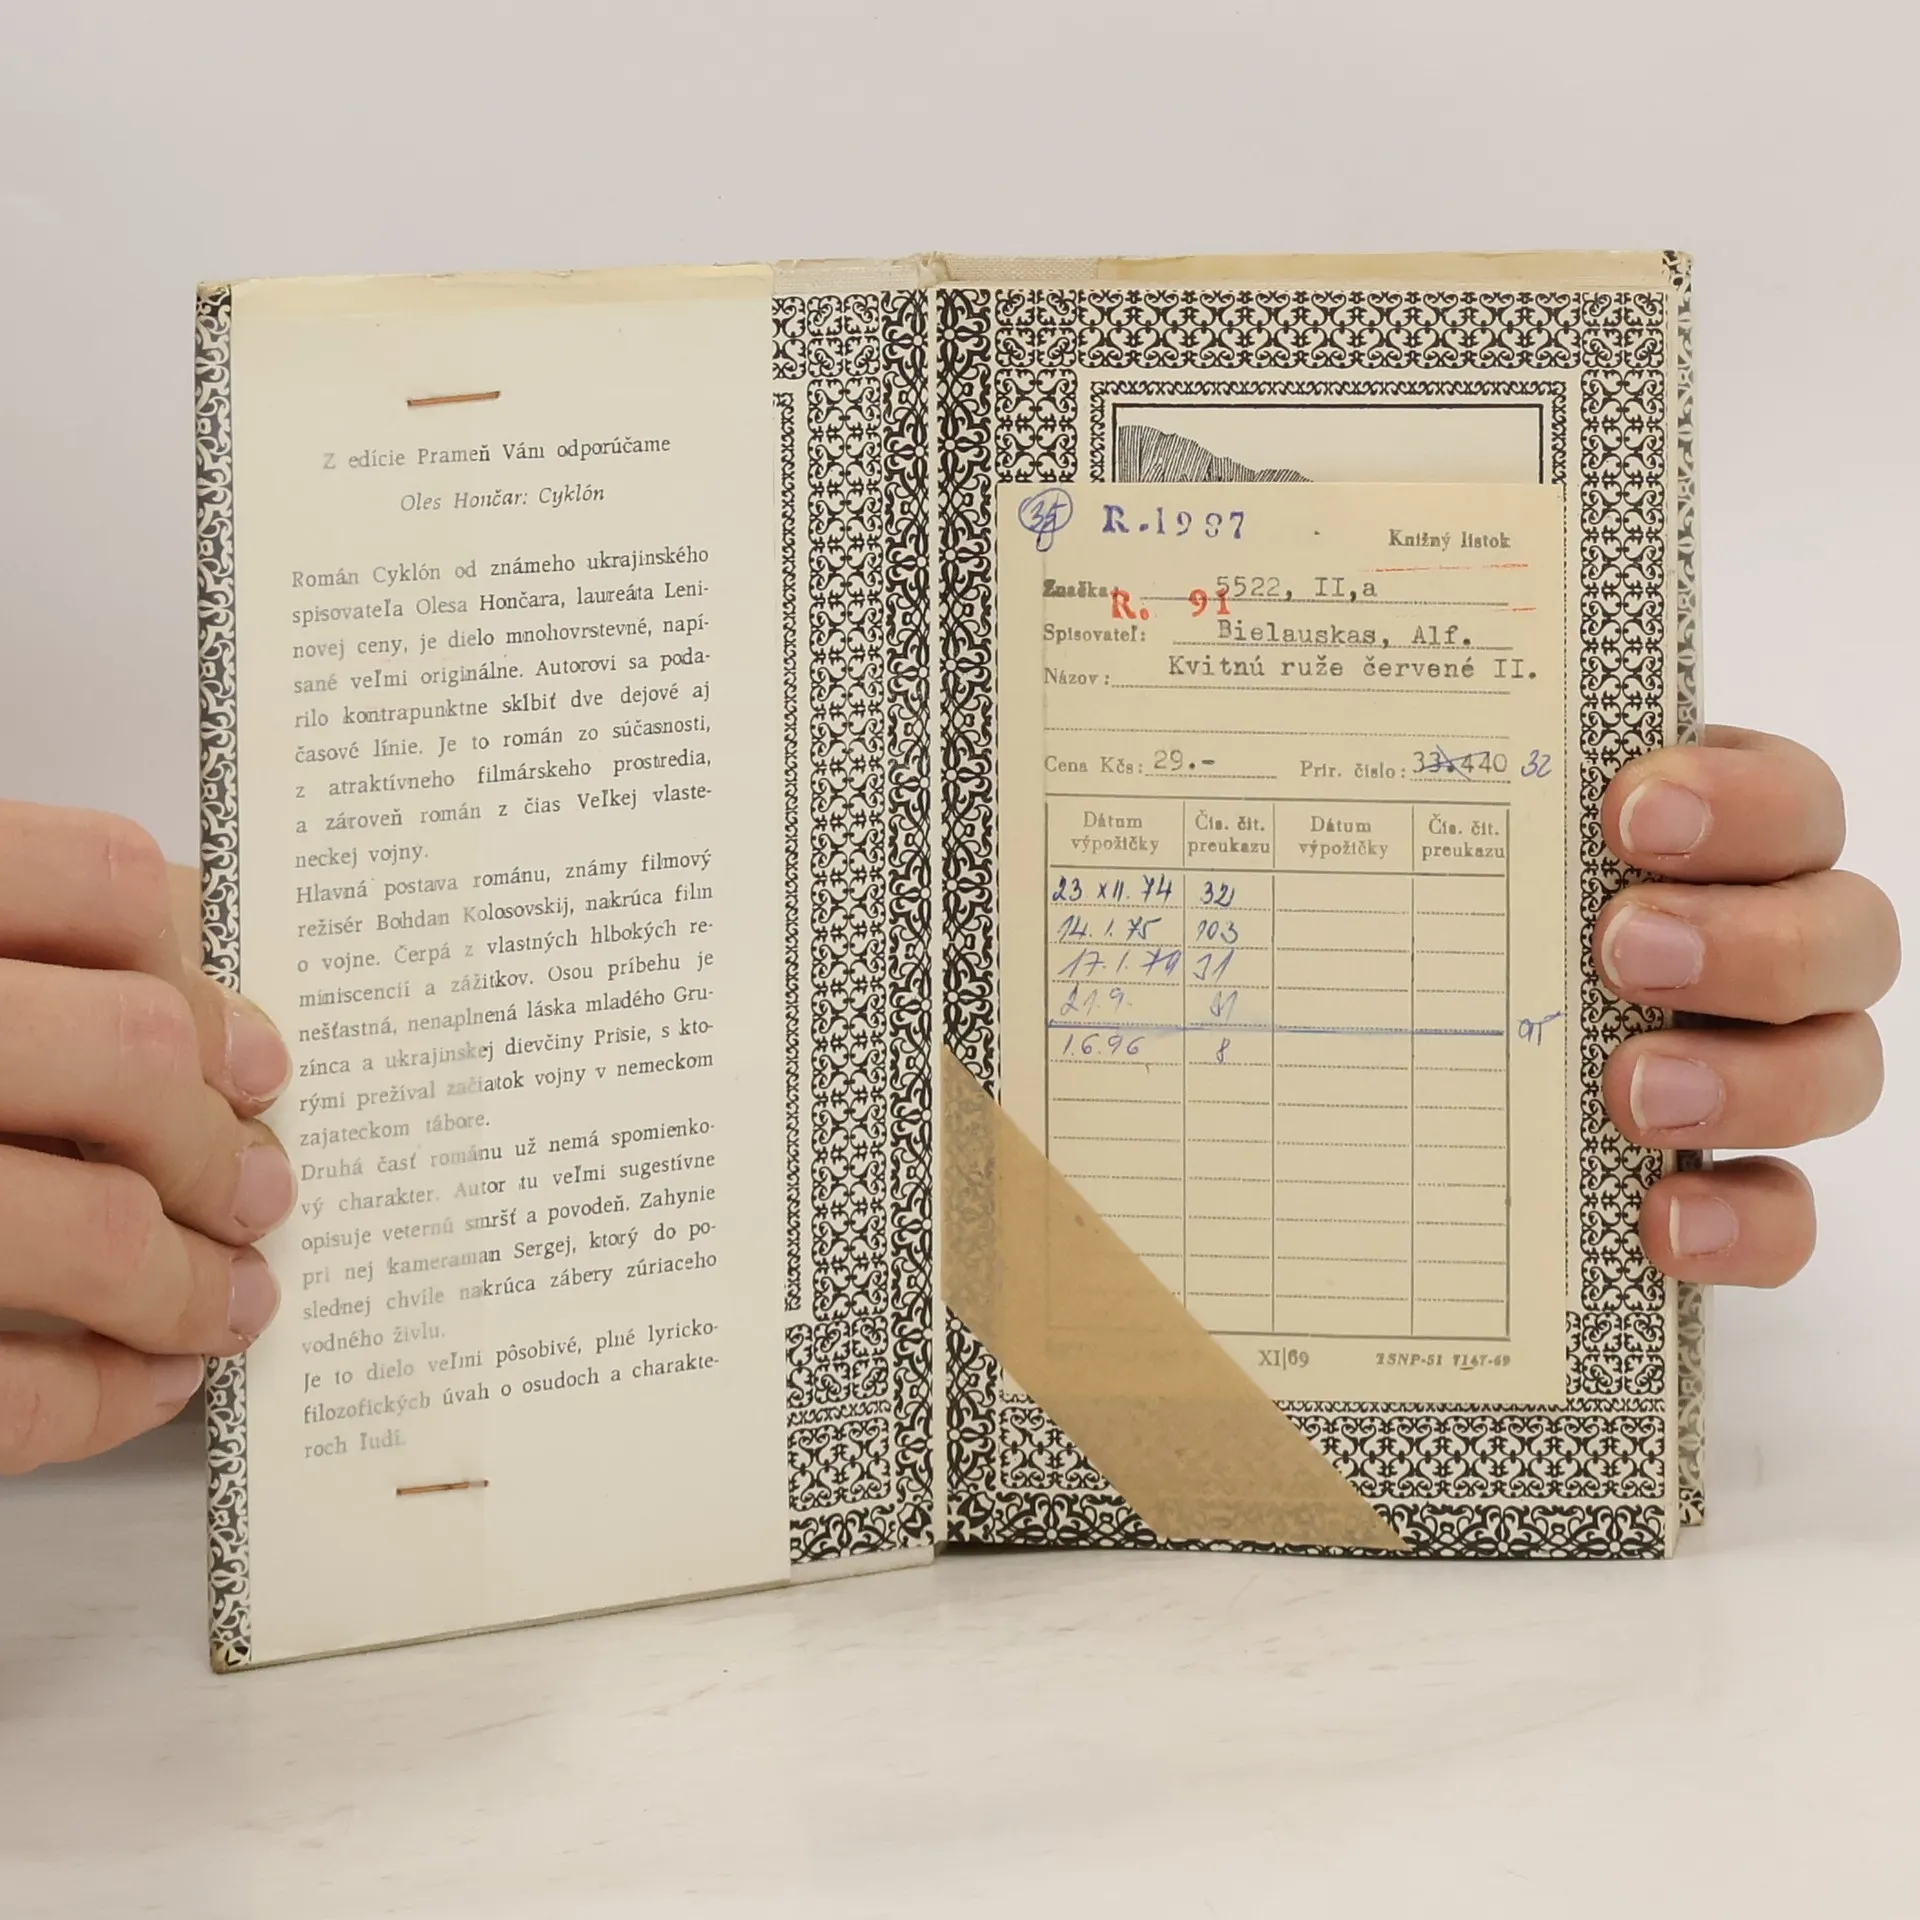 Z edície Prameň Vám odporúčame
Oles Hončar: Cyklón
Román Cyklón od známeho ukrajinského
spisovateľa Olesa Hončara, laureáta Leni-
novej ceny, je dielo mnohovrstevné, napí-
sané veľmi originálne. Autorovi sa poda-
rilo kontrapunktne skĺbiť dve dejové aj
časové línie. Je to román zo súčasnosti,
z atraktívneho filmárskeho prostredia,
a zároveň román z čias Veľkej vlaste-
neckej vojny.
Hlavná postava románu, známy filmový
režisér Bohdan Kolosovskij, nakrúca film
o vojne. Čerpá z vlastných hlbokých re-
miniscencií a zážitkov. Osou príbehu je
nešťastná, nenaplnená láska mladého Gru-
zínca a ukrajinskej dievčiny Prisie, s kto-
rými prežíval začiatok vojny v nemeckom
zajateckom tábore.
Druhá časť románu už nemá spomienko-
vý charakter. Autor tu veľmi sugestívne
opisuje veternú smršť a povodeň. Zahynie
pri nej kameraman Sergej, ktorý do po-
slednej chvíle nakrúca zábery zúriaceho
vodného živlu.
Je to dielo veľmi pôsobivé, plné lyricko-
filozofických úvah o osudoch a charakte-
roch ľudí.
R.1987
Knižný lístok
Značka: 5522, II,a
R. 91
Spisovateľ: Bielauskas, Alf.
Názov: Kvitnú ruže červené II.
Cena Kčs: 29.- Prír. číslo: 33.440 32
Dátum výpožičky Čís. čit. preukazu Dátum výpožičky Čís. čit. preukazu
23 XII. 74 32
14. 1. 75 103
17. 1. 79 31
21.9.
1.6.96 8
XI|69 TSNP-51 7147-69